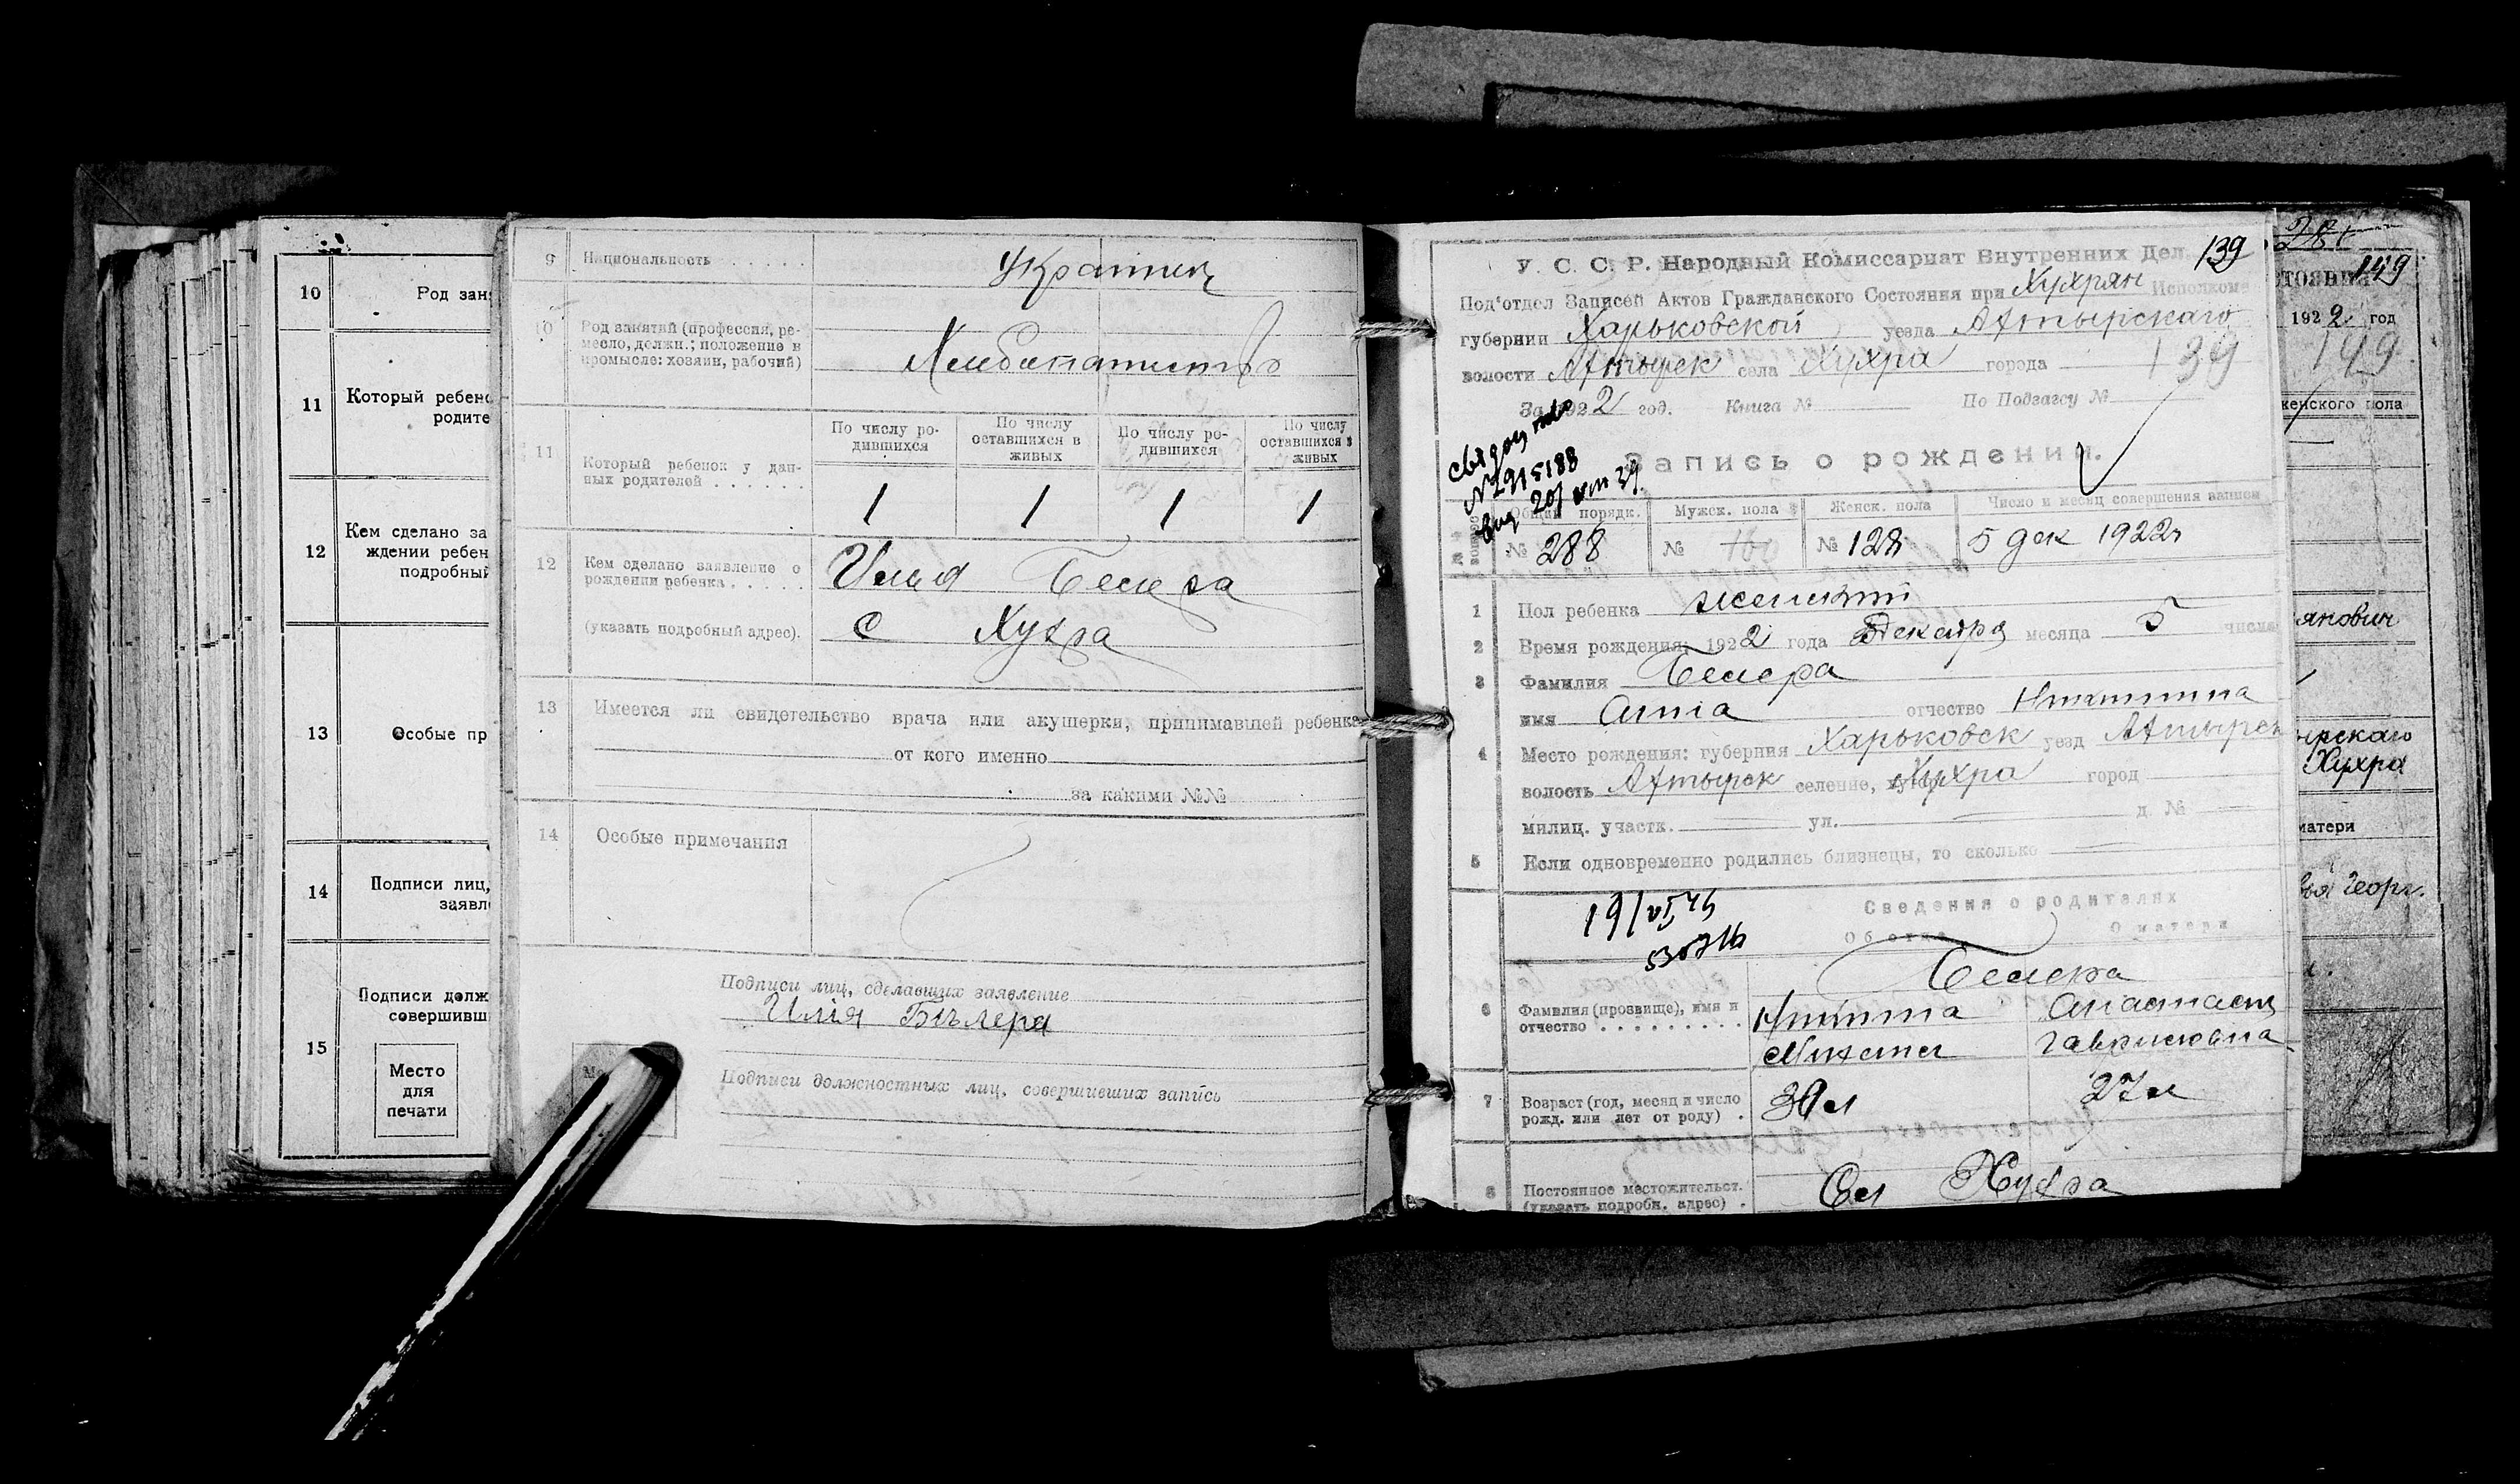 10
Род зан
11
Который ребен
родите
12
Кем сделано за
ждении ребен
подробный
13
Особые пр
14
Подписи лиц,
заявл
15
Подписи долж
совершивш
Место
для
печати
9 Национальность . . . . . . Украинц
10 Род занятий (профессия, ре-
месло, должн.; положение в
промысле: хозяин, рабочий)
Хлебопашество
11 Который ребенок у дан-
ных родителей . . . . . .
По числу ро-
дившихся
По числу
оставшихся в
живых
По числу ро-
дившихся
По числу
оставшихся в
живых
1 1 1 1
12 Кем сделано заявление о
рождении ребенка . . . . .
(указать подробный адрес).
Илья Белера
с Хухра
13 Имеется ли свидетельство врача или акушерки, принимавшей ребенка
от кого именно
за какими №№
14 Особые примечания
Подписи лиц, сделавших заявление
Илія Бѣлера
Подписи должностных лиц, совершивших запись
139
У. С. С. Р. Народный Комиссариат Внутренних Дел.
Под'отдел Записей Актов Гражданского Состояния при Хухрян Исполкоме
губернии Харьковской уезда Ахтырскаго
волости Ахтырск села Хухра города
139
За 1922 год. Книга № По Подзагсу №
№ 2915188
Запись о рождении.
Общий порядк. Мужск. пола Женск. пола Число и месяц совершения записи
№ 288 № № 128 5 дек 1922г
1 Пол ребенка женский
2 Время рождения: 1922 года Декабря месяца 5 числа
3 Фамилия Белера
имя Анна отчество Никитина
4 Место рождения: губерния Харьковск уезд Ахтырск
волость Ахтырск селение, хутор Хухра город
милиц. участк. ул. д. №
5 Если одновременно родились близнецы, то сколько
Сведения о родителях
Об отце О матери
6 Фамилия (прозвище), имя и
отчество . . . . . . . . . .
Белера
Никита Анастасия
Гавриловна
7 Возраст (год, месяц и число
рожд. или лет от роду) .
27 л
8 Постоянное местожительст.
(указать подробн. адрес) .
Сл Хухра
149
1922 год
149
женского пола
янович
ырскаго
Хухра
матери
Георг.